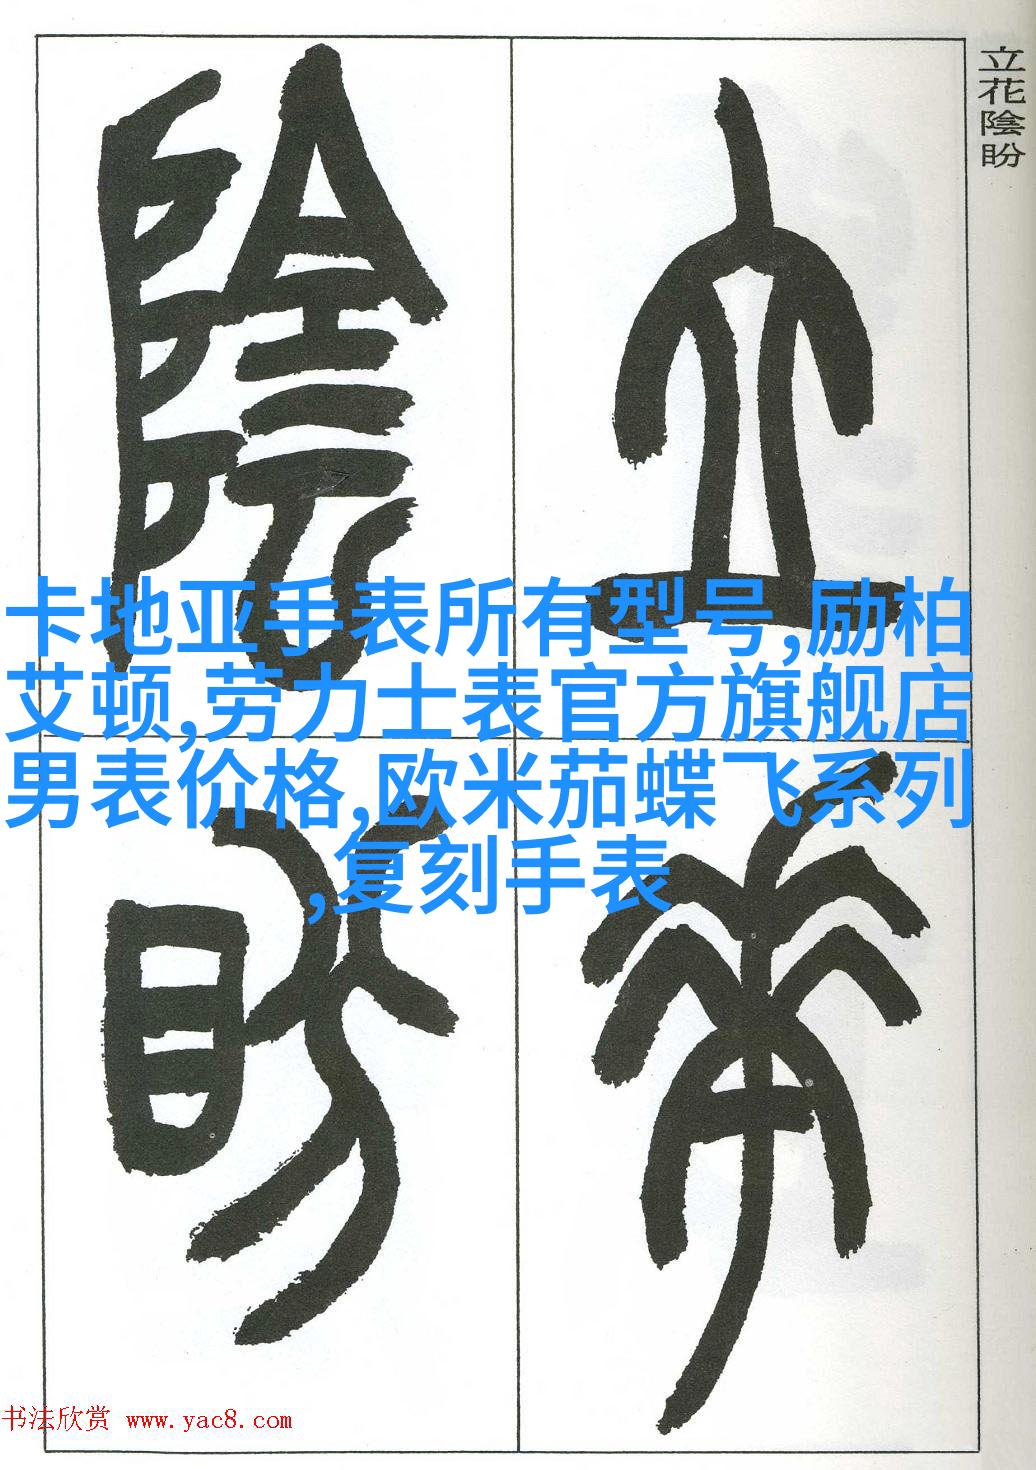 立花陰盼
立
花
陰
盼
卡地亚手表所有型号,励柏
艾顿,劳力士表官方旗舰店
男表价格,欧米茄蝶飞系列
,复刻手表
书法欣赏 www.yac8.com